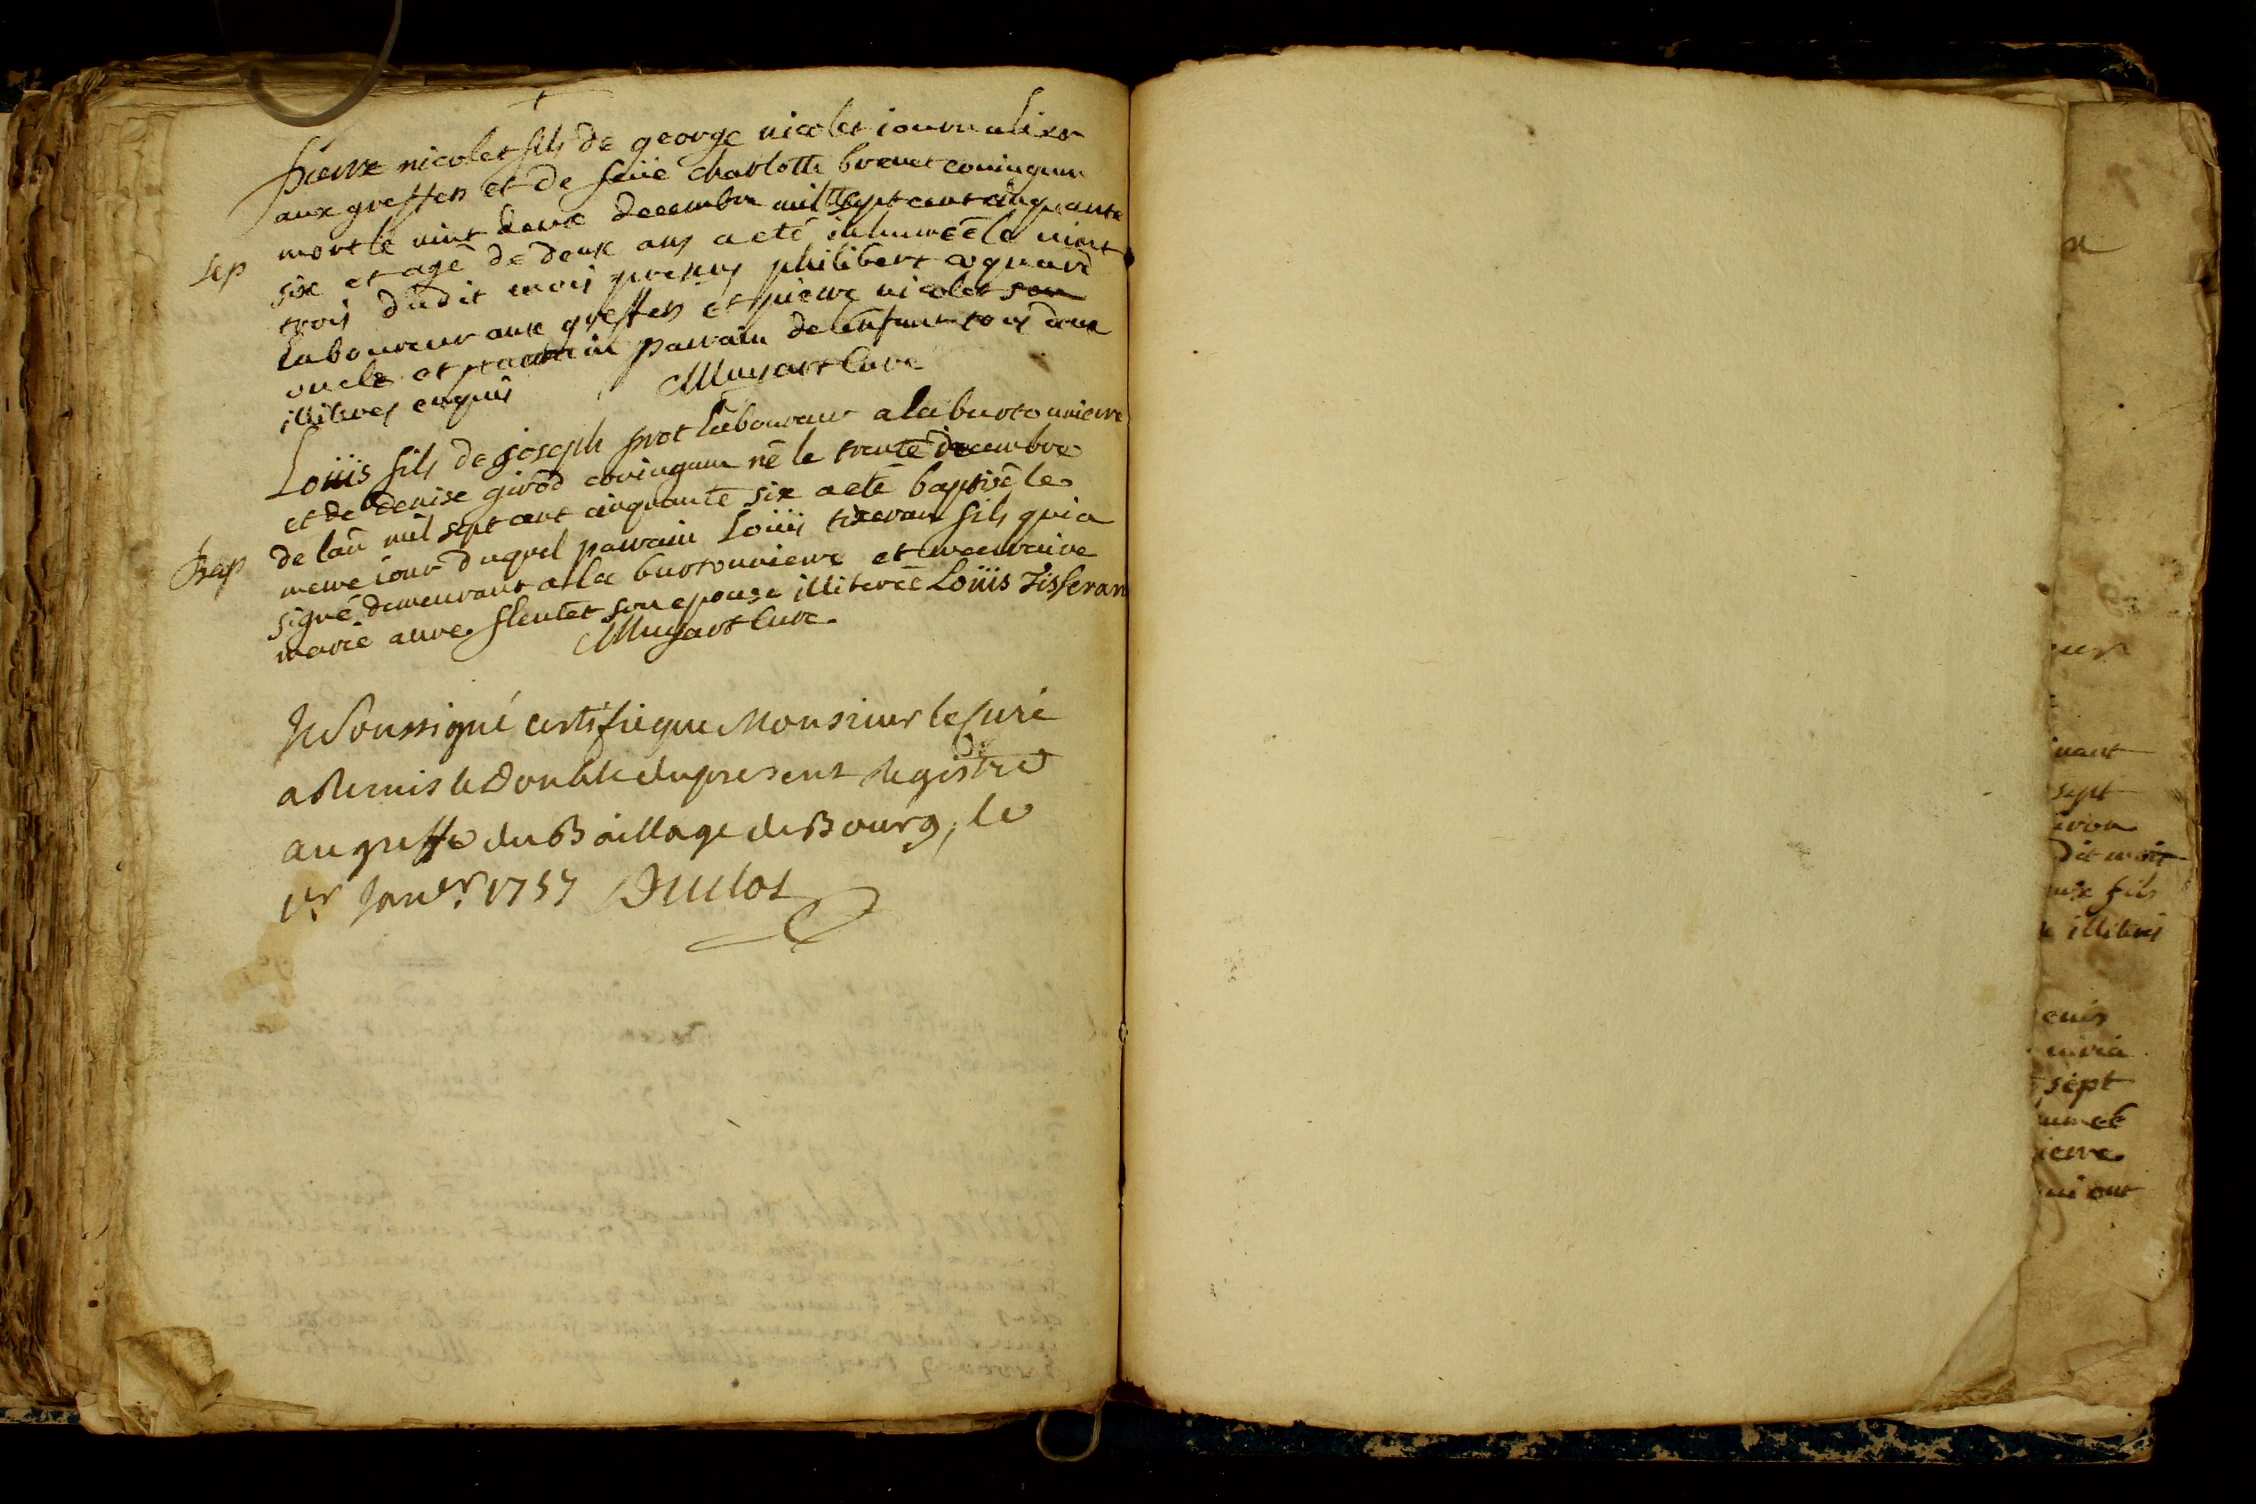 pierre nicolet fils de george nicolet iournalier
aux greffets et de feüe charlotte brevet coniugum
mort le vint deux decembre mil sept cent cinquante
sep
six et agé de deux ans a eté inhumeé le vint
trois dudit mois presens philibert
laboureur aux greffets et pierre nicolet son
oncle et parrain de lenfant tous deux
illiteres enquis Muyart Curé
Loüis fils de joseph prot laboureur a la burtonniere
et de denise girod coniugum né le trente decembre
de lan mil sept cent cinquante six a eté baptisé le
Bap
meme iour duquel parrain Loüis tixeran fils qui a
signé demeurant a la burtonniere et marraine
marie anne flentet son epouse illitereé Loüis Tisseran
Muyart Curé
Je Soussigné certifie que Monsieur le Curé
a Remis le Double du present Registre
au greffe du Baillage de Bourg, le
1er Janer. 1757 Duclos
nant
sept
dit mois
fils
illiteres
sept
ont